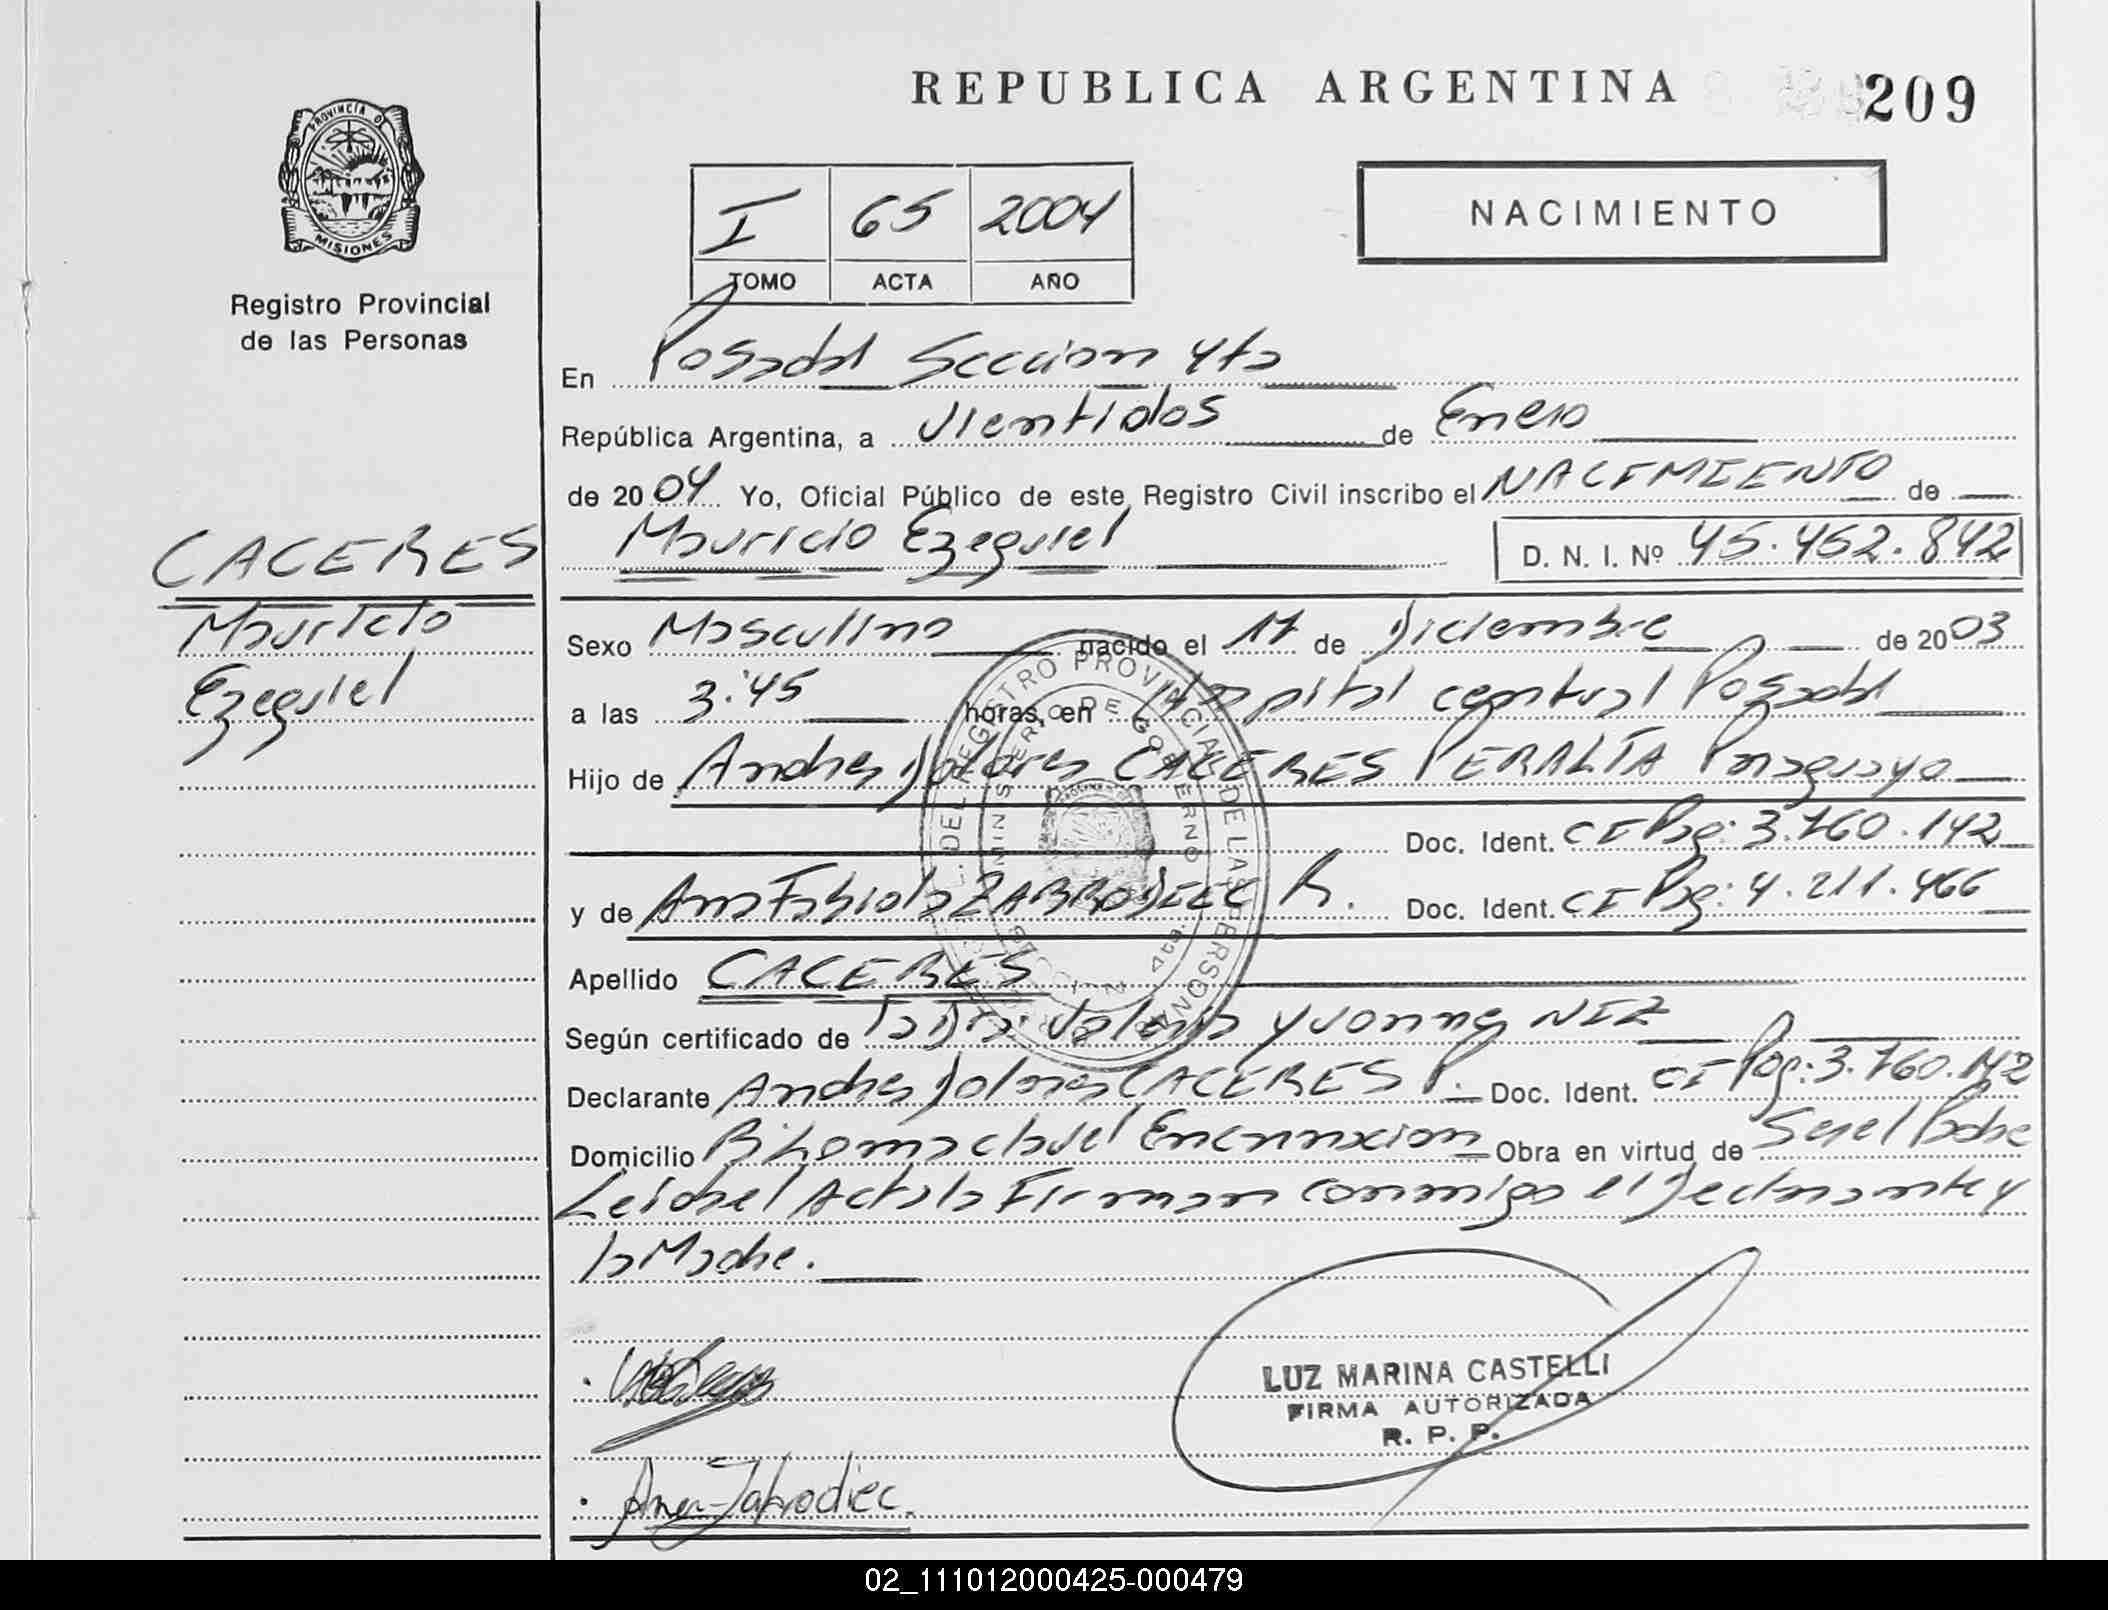 REPUBLICA ARGENTINA
209
PROVINCIA D
MISIONES
Registro Provincial
de las Personas
I 65 2004
TOMO ACTA AÑO
NACIMIENTO
En Posadas Seccion 4ta
República Argentina, a Vientidos de Enero
de 2004 Yo, Oficial Público de este Registro Civil inscribo el NACIMIENTO de
Mauricio Ezequiel D. N. I. Nº 45.452.842
CACERES
Mauricio
Ezequiel
Sexo Masculino nacido el 17 de Diciembre de 2003
a las 3:45 horas, en Hospital central Posadas
Hijo de Andres Dolores CACERES PERALTA Paraguayo
Doc. Ident. CI Pag: 3.760.142
y de Ana Fabiola ZABRODIEC R. Doc. Ident. CI Pag: 4.211.466
Apellido CACERES
Según certificado de la Dra. Valeria Yvonne NIZ
Declarante Andres Dolores CACERES P. Doc. Ident. CI Pag: 3.760.142
Domicilio Encarnacion Obra en virtud de Ser el Padre
Leida el Acta la Firman conmigo el Declarante y
la Madre.
DEL REGISTRO PROVINCIAL DE LAS PERSONAS
MINISTERIO DE GOBIERNO
LUZ MARINA CASTELLI
FIRMA AUTORIZADA
R. P. P.
Ana Zabrodiec
02_111012000425-000479